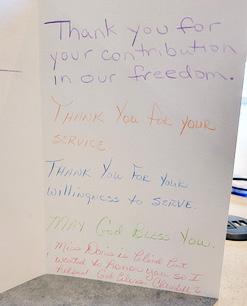 Thank you for
your contribution
in our freedom.
THANK YOU FOR YOUR
SERVICE.
THANK YOU FOR YOUR
willingness to SERVE.
MAY GOD BLESS YOU.
Miss Doris is Blind But
wanted to honor you so I
helped God Bless